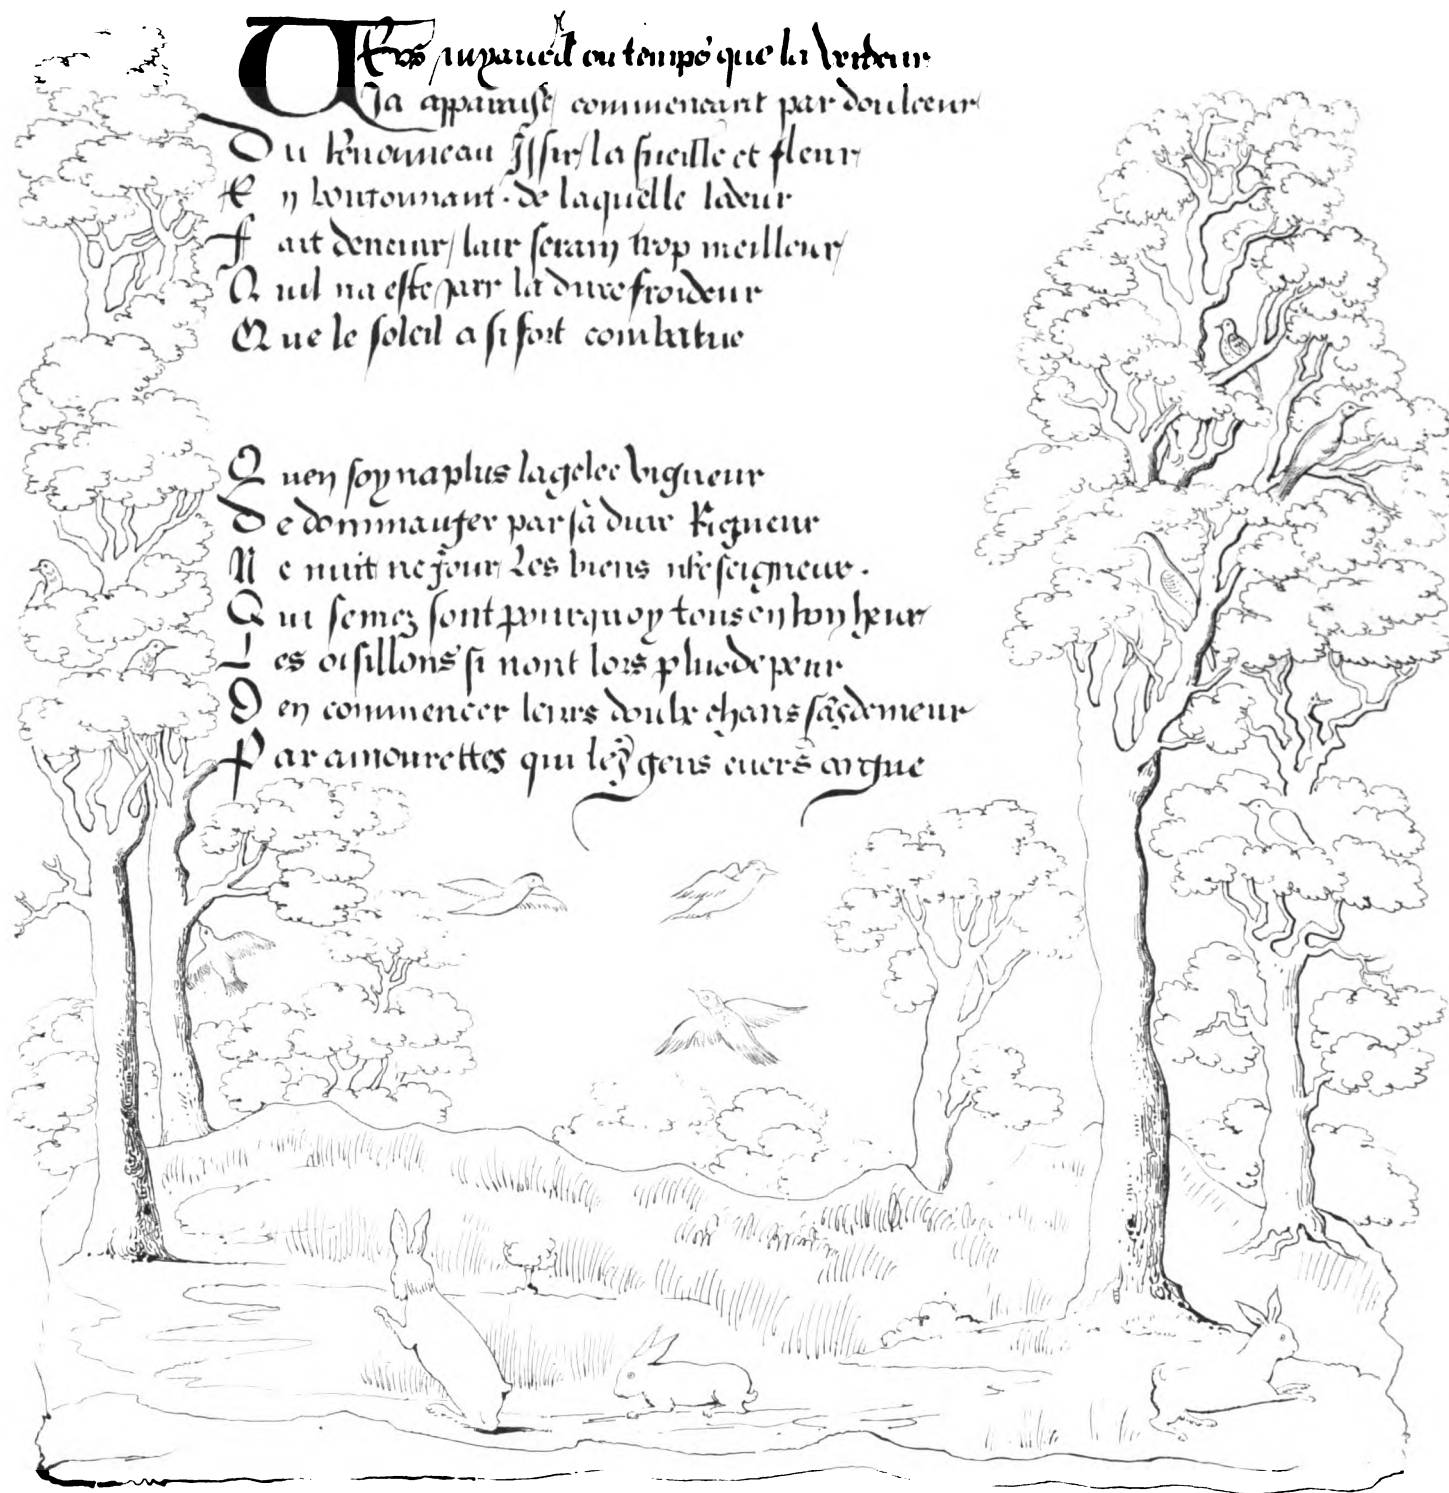 Vers my avril ou temps que la verdeur
Ja apparaist / commencant par doulceur
Du Renouveau Issir / la fueille et fleur /
En boutonnant . de laquelle ladeur
Fait devenir / lair serain trop meilleur /
Quil na este parr la dure froideur
Que le soleil a si fort combatue
Quen soy na plus la gelee vigueur
De dommaiger par sa dure Rigueur
Ne nuit ne Jour / Les biens nre seigneur .
Qui semez sont pourquoy tous en bon heur /
Les oisillons si nont lors plus de peur
Den commencer leurs doulx chans sas demeur
Par amourettes qui les gens envers argue